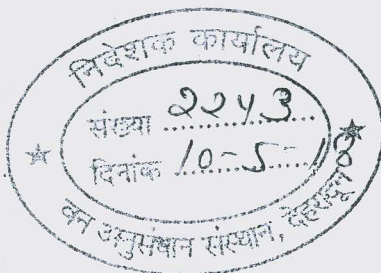 निदेशक कार्यालय
संख्या 2243
दिनांक 10-5-18
वन अनुसंधान संस्थान, देहरादून